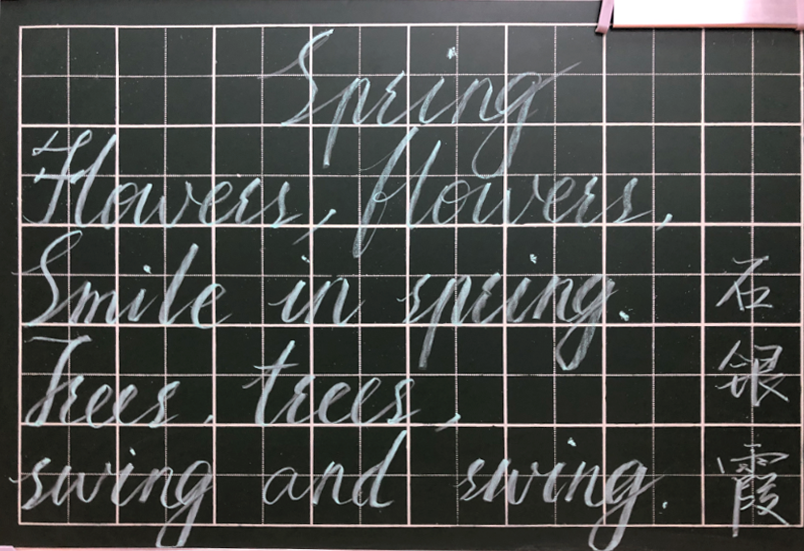 Spring
Flowers, flowers,
Smile in spring.
Trees, trees,
swing and swing.
石银霞